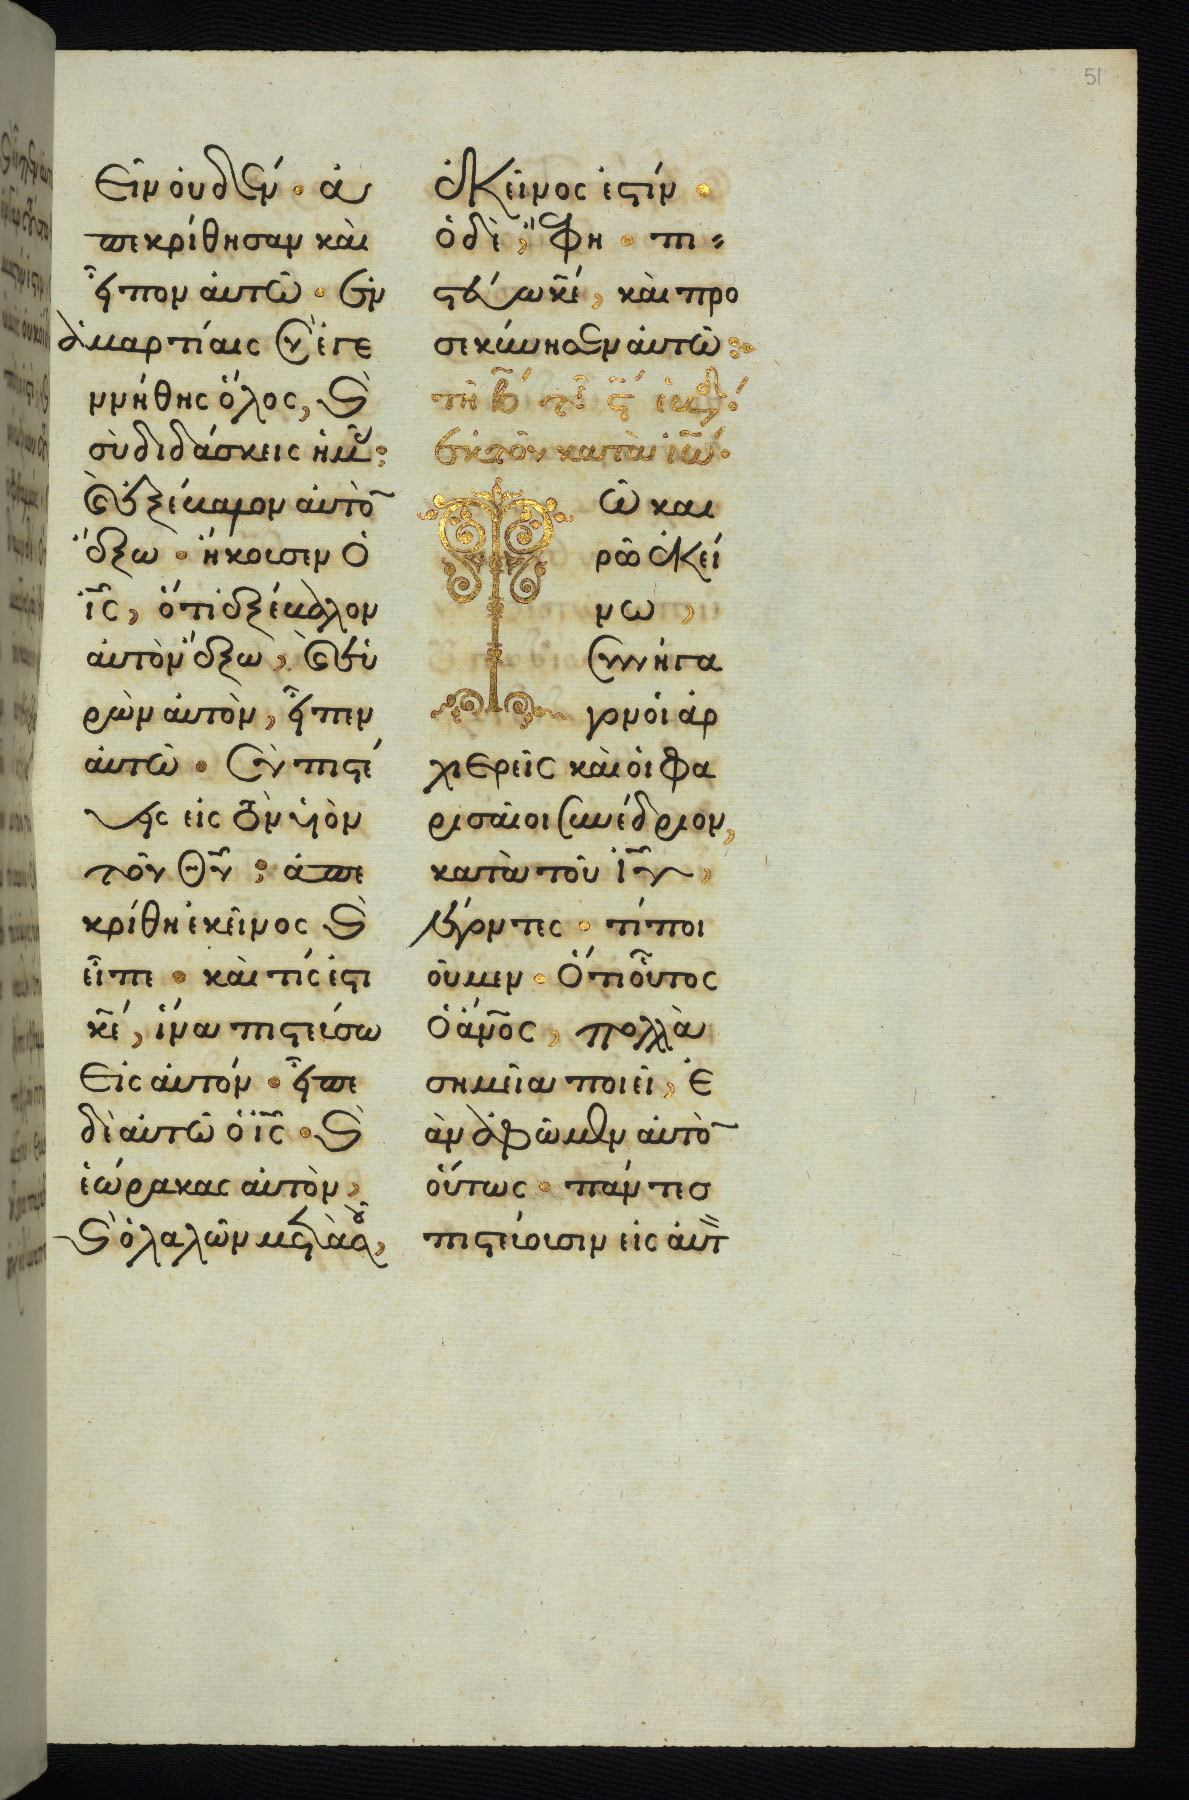 51
εῖν οὐδέν · ἀ
πεκρίθησαν καὶ
εἶπον αὐτῶ · ἐν
ἁμαρτίαις σὺ ἐγε
ννήθης ὅλος, καὶ
σὺ διδάσκεις ἡμᾶς;
καὶ ἐξέβαλον αὐτὸν
ἔξω · ἤκουσεν ὁ
ἰς̅, ὅτι ἐξέβαλον
αὐτὸν ἔξω, καὶ εὑ
ρὼν αὐτὸν, εἶπεν
αὐτῶ · σὺ πιστεύ
εις εἰς τὸν υἱὸν
τοῦ θυ̅; ἀπε
κρίθη ἐκεῖνος καὶ
εἶπε · καὶ τίς ἐστι
κε̅, ἵνα πιστεύσω
εἰς αὐτόν · εἶπε
δὲ αὐτῶ ὁ ἰς̅ · καὶ
ἑώρακας αὐτὸν,
καὶ ὁ λαλῶν μετὰ σοῦ,
ἐκεῖνός ἐστιν ·
ὁ δὲ, ἔφη · πι
στεύω κε̅, καὶ προ
σεκύνησεν αὐτῶ:
τῆ β τῆς ϛ ἑβδ.
ἐκ τοῦ κατὰ ἰω.
Τῶ και
ρῶ ἐκεί
νω,
συνήγα
γον οἱ ἀρ
χιερεῖς καὶ οἱ φα
ρισαῖοι συνέδριον,
κατὰ τοῦ ἰυ̅,
λέγοντες · τί ποι
οῦμεν · ὅτι οὗτος
ὁ ἀν̅ος, πολλὰ
σημεῖα ποιεῖ, ἐ
ὰν ἀφῶμεν αὐτὸν
οὕτως · πάντες
πιστεύσουσιν εἰς αὐτ